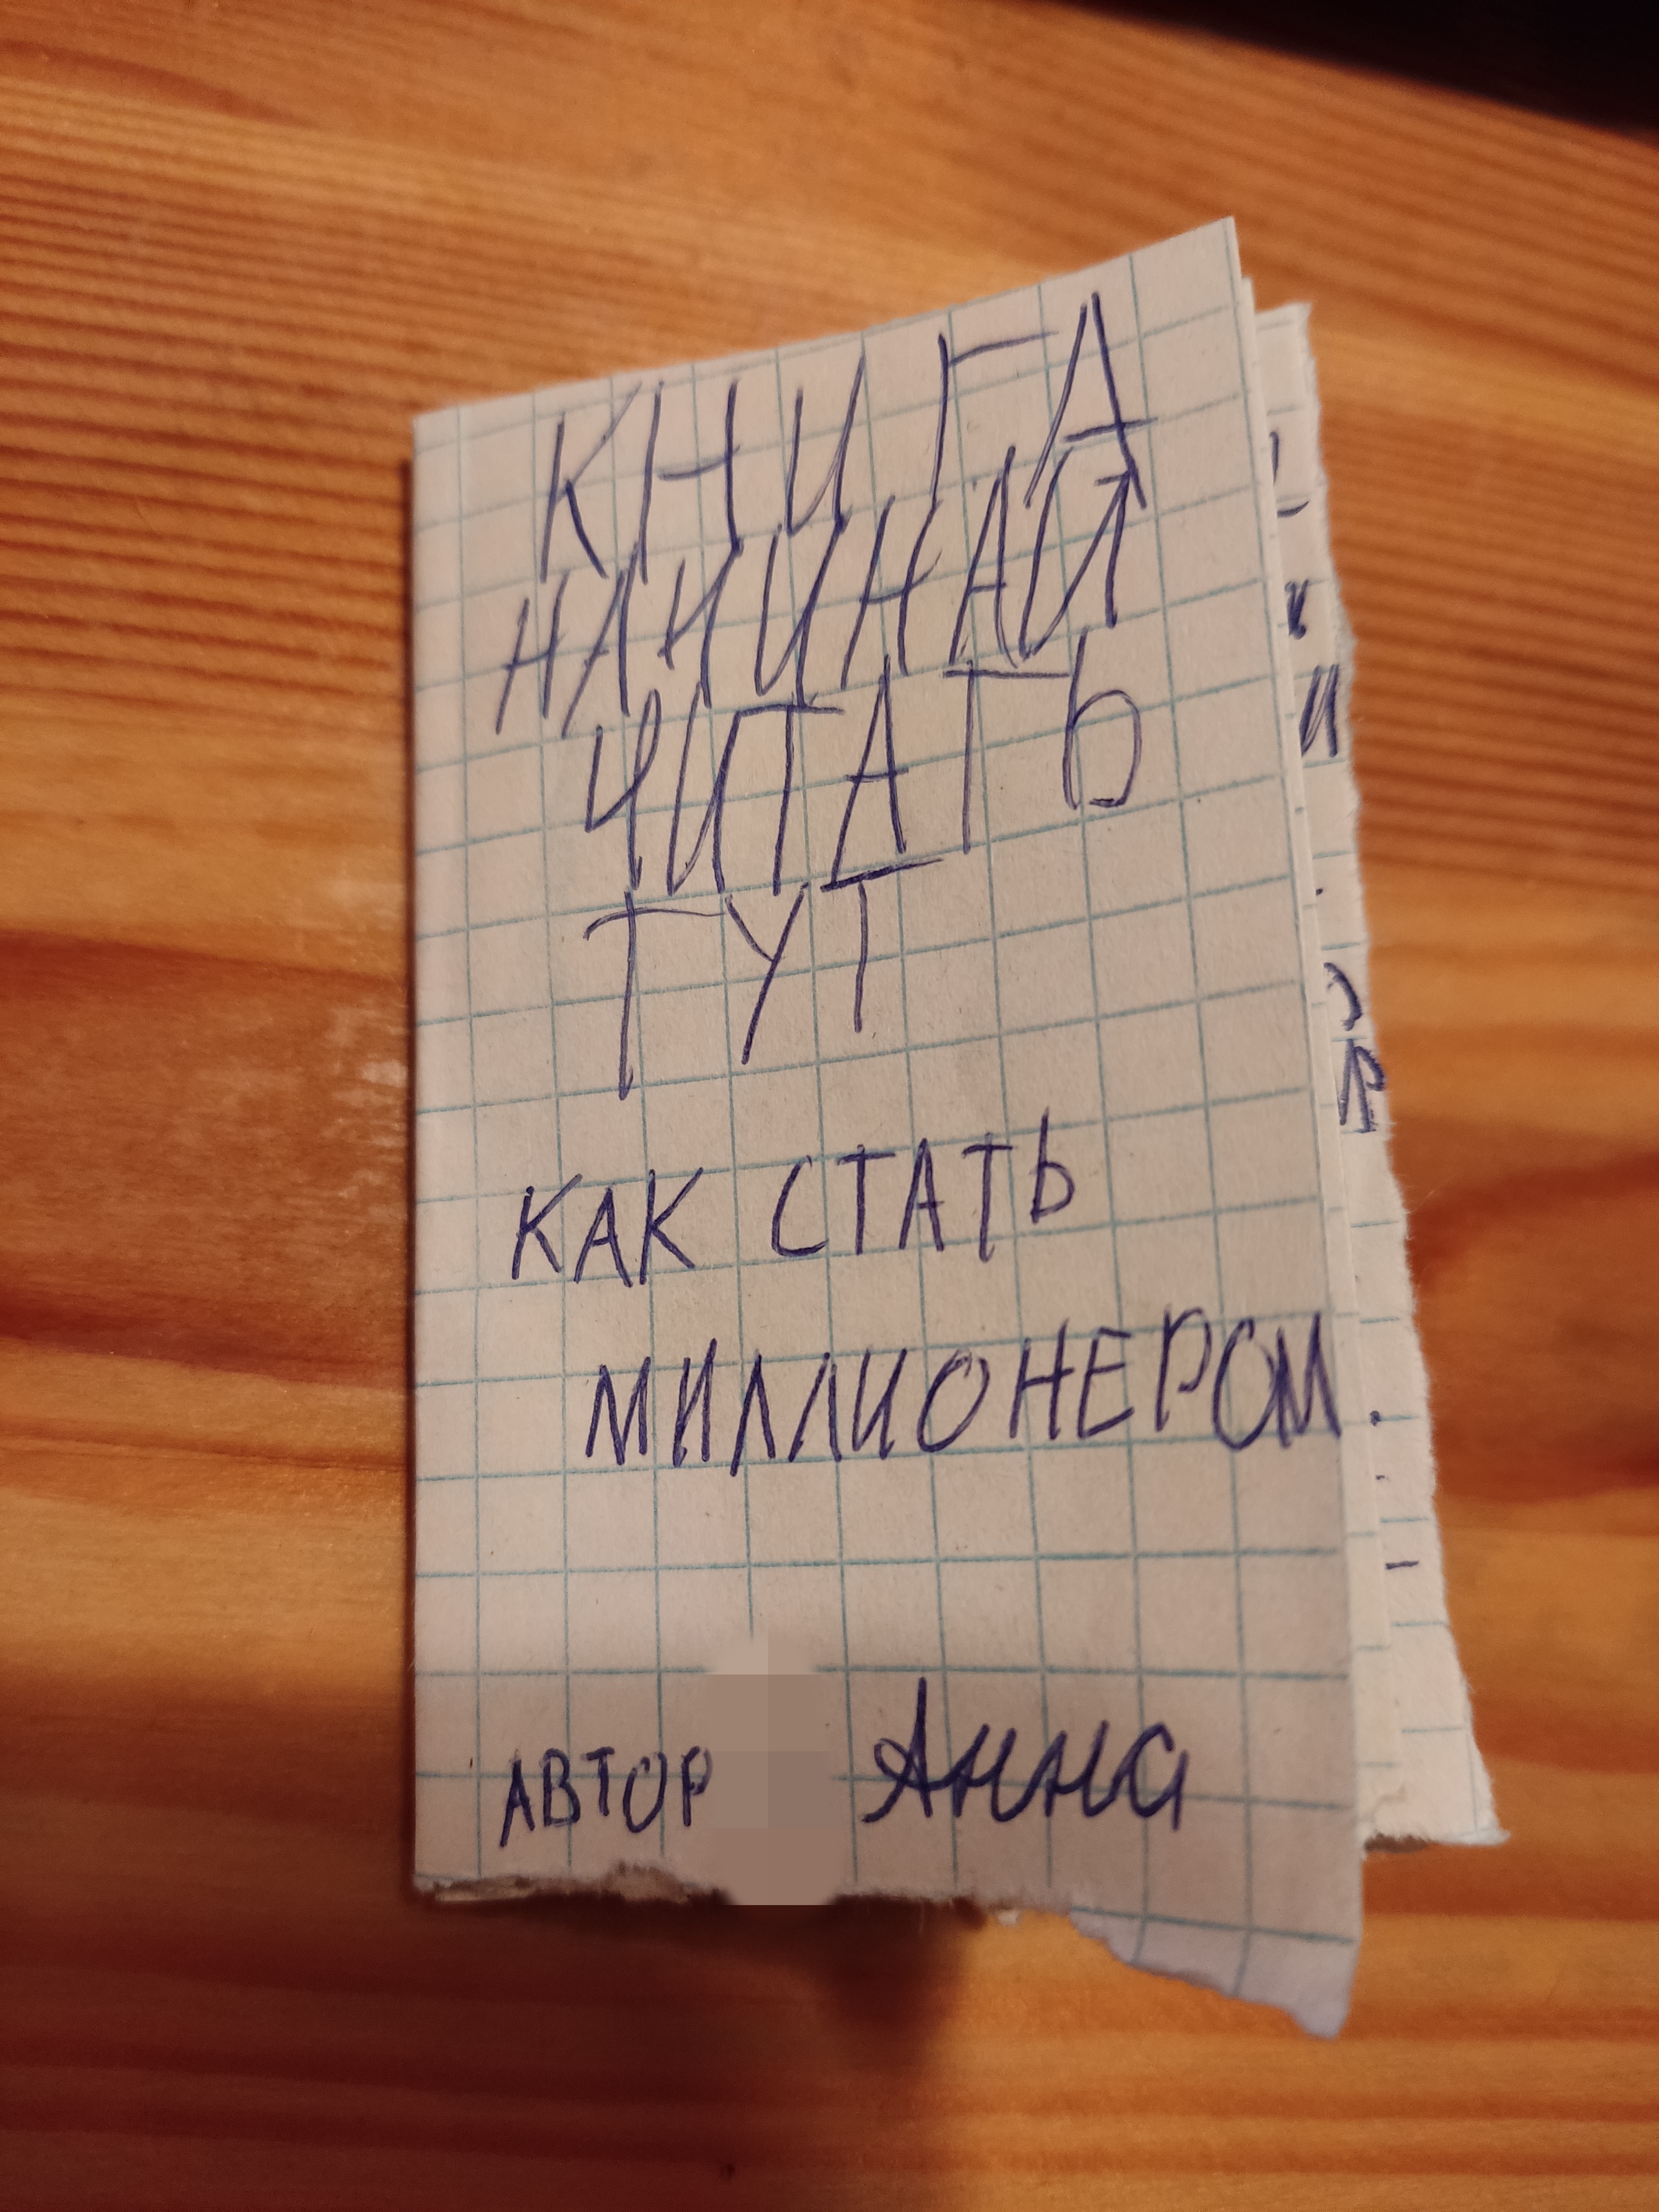 КНИГА
НАЧИНАЙ
ЧИТАТЬ
ТУТ
КАК СТАТЬ
МИЛЛИОНЕРОМ
АВТОР Анна